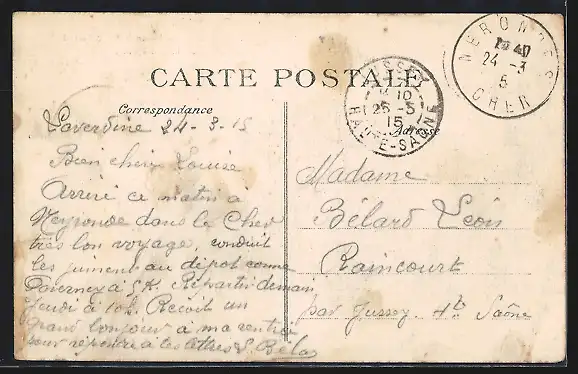 CARTE POSTALE
Correspondance
Adresse
NERONDES
24 -3
5
CHER
JUSSEY
10
25 -3
15
HAUTE-SAONE
Laverdine 24-3-15
Bien chère Louise
Arrivé ce matin à
dans le Cher
très bon voyage, conduit
les juments au dépôt comme
à 5 K. Repartir demain
Jeudi à 10h. Reçoit un
grand bonjour à ma rentrée
pour répondre à tes lettres
Madame
Bélard Léon
Raincourt
par Jussey. Hte Saône